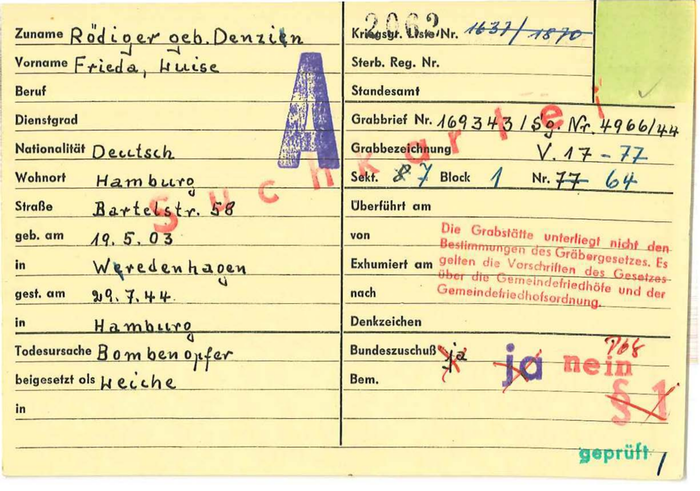 Zuname Rödiger geb. Denzien
Vorname Frieda, Luise
Beruf
Dienstgrad
Nationalität Deutsch
Wohnort Hamburg
Straße Bartelstr. 58
geb. am 19.5.03
in Weredenhagen
gest. am 29.7.44
in Hamburg
Todesursache Bombenopfer
beigesetzt als Leiche
in
A
Suchkartei
2062
Kriegsgr. Liste Nr. 1637/1870
Sterb. Reg. Nr.
Standesamt
Grabbrief Nr. 169343/Sg. Nr. 4966/44
Grabbezeichnung V. 17-77
Sekt. 8 7 Block 1 Nr. 77 64
Überführt am
von
Exhumiert am
nach
Die Grabstätte unterliegt nicht den
Bestimmungen des Gräbergesetzes. Es
gelten die Vorschriften des Gesetzes
über die Gemeindefriedhöfe und der
Gemeindefriedhofsordnung.
Denkzeichen
Bundeszuschuß ja ja nein
Bem. § 1
geprüft